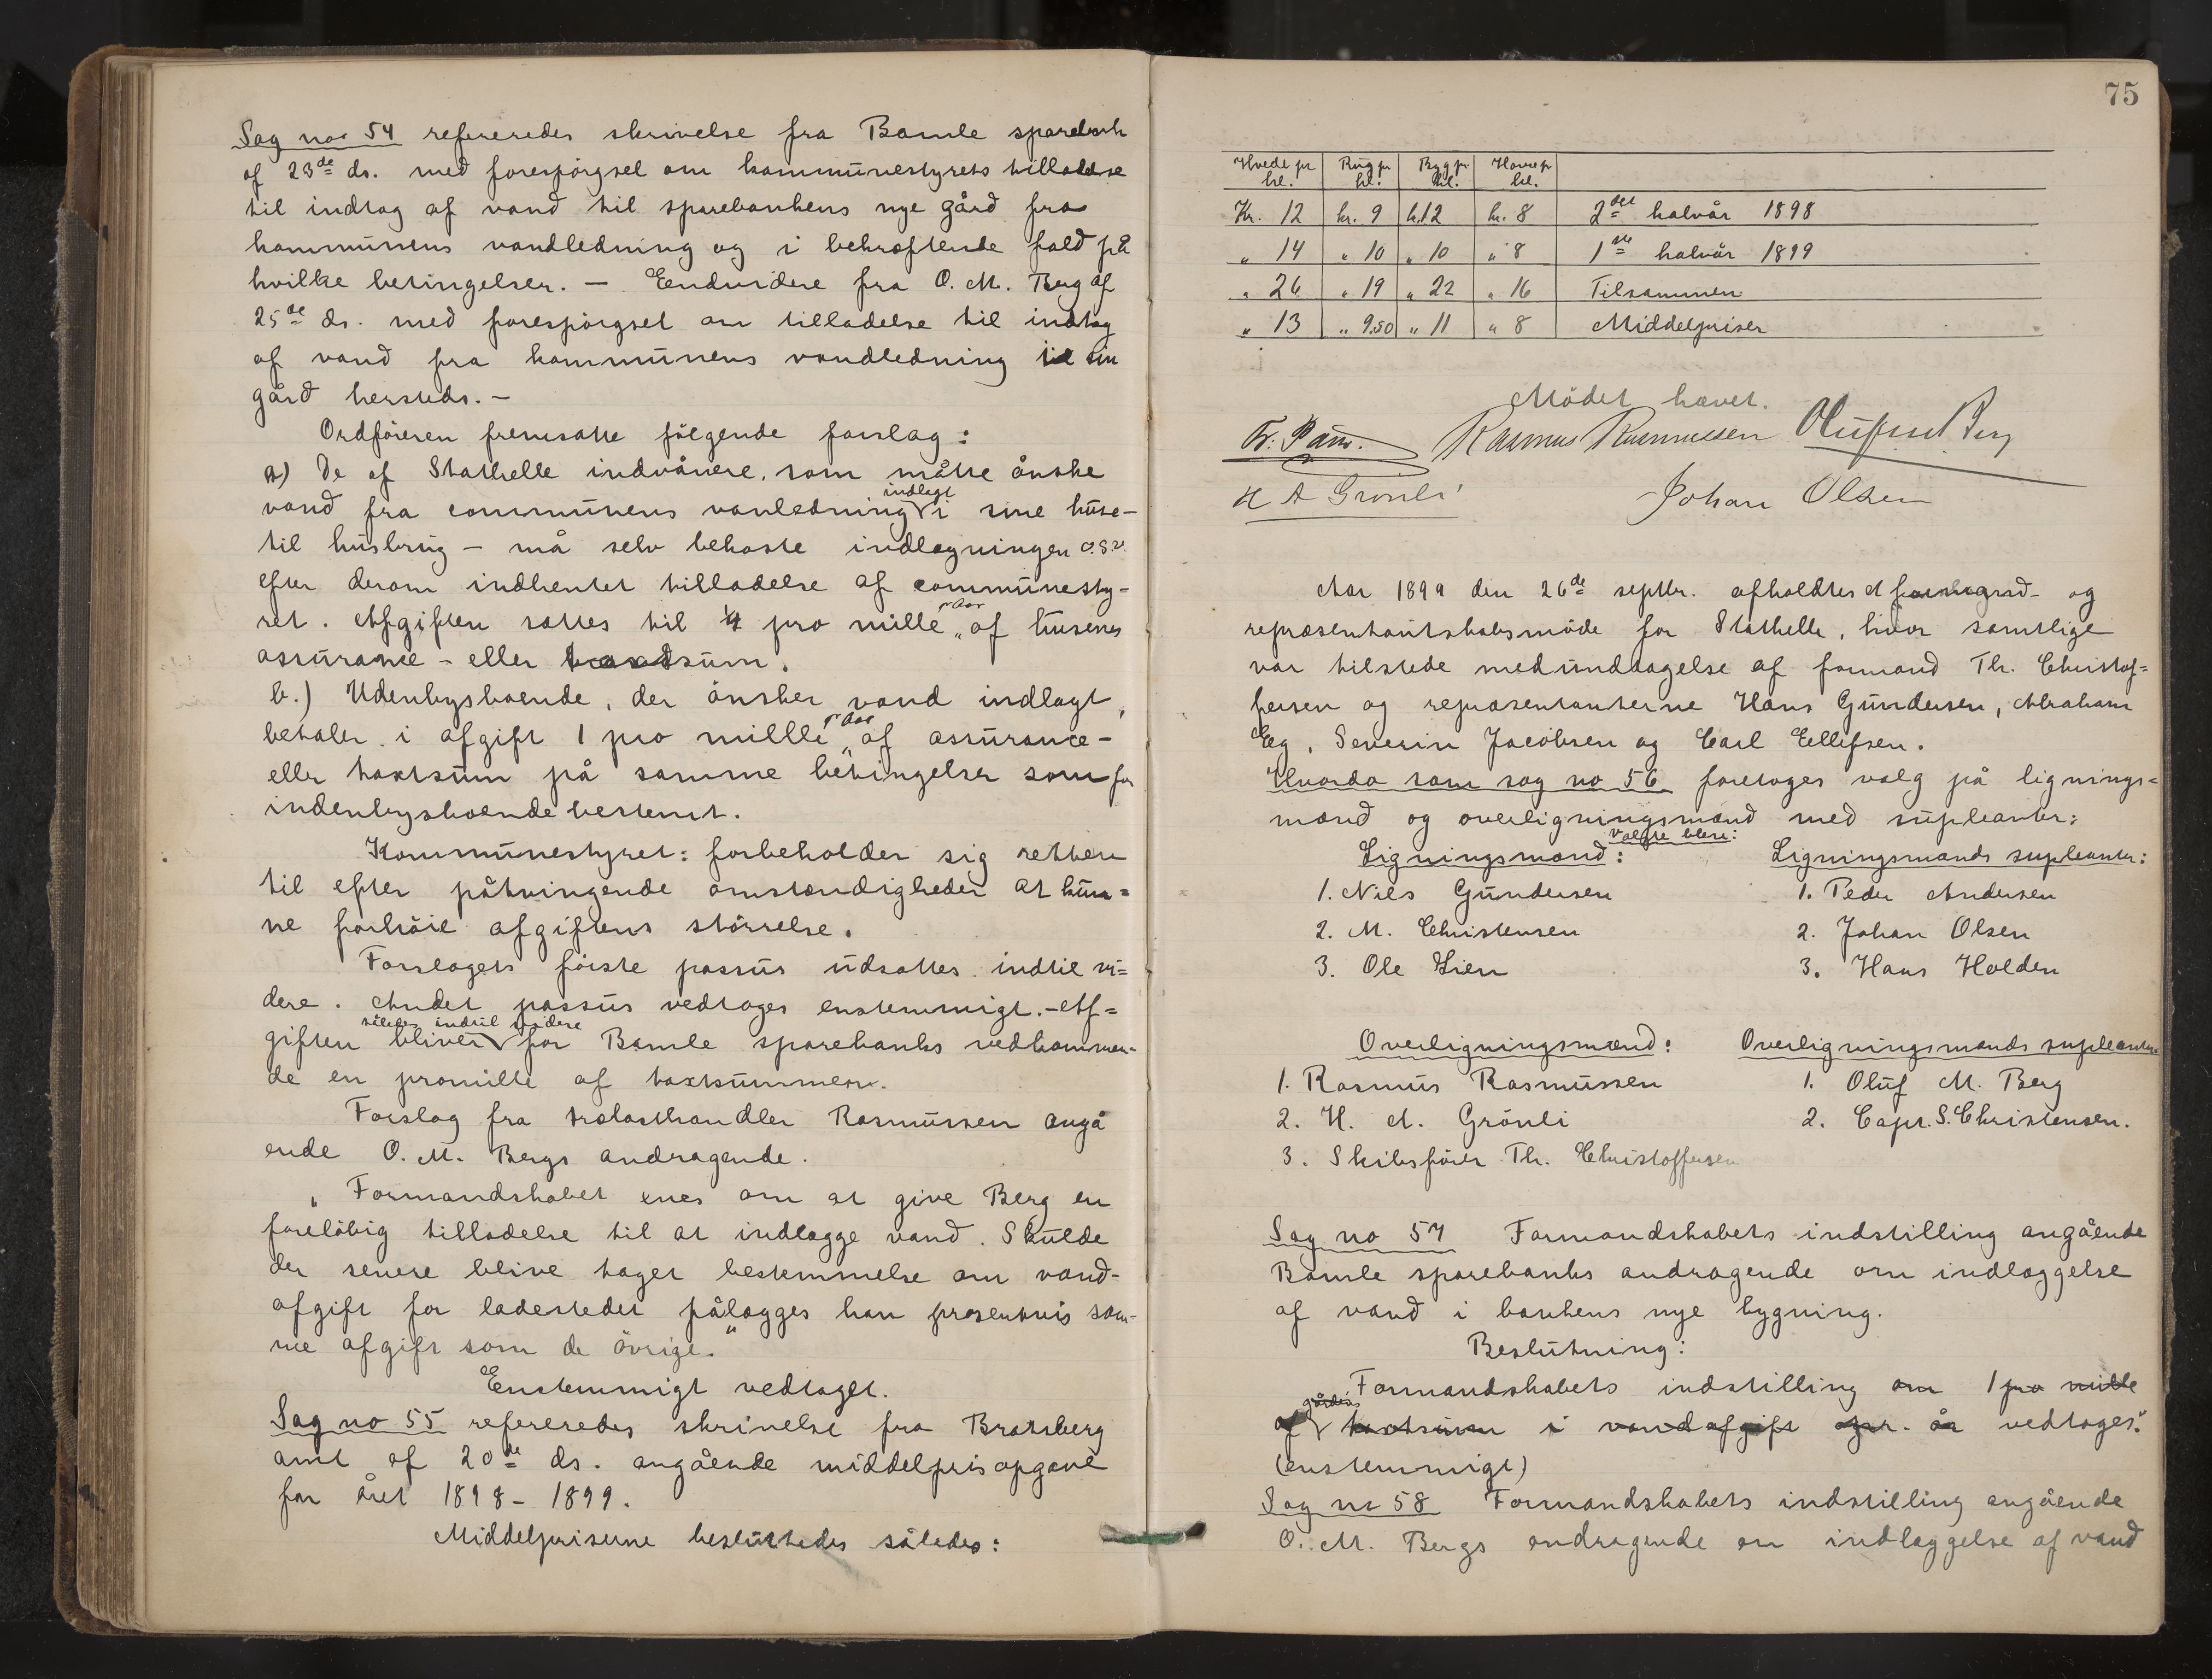 Sag no 54 refereredes skrivelse fra Bamle sparebank
af 23de ds. med forespörgsel om kommunestyrets tilladelse
til indtag af vand til sparebankens nye gård fra
kommunens vandledning og i bekræftende fald på
hvilke betingelser. — Endvidere fra O. M. Berg af
25de ds. med forespörgsel om tilladelse til indtag
af vand fra kommunens vandledning til sin
gård hersteds. —
Ordföreren fremsatte fölgende forslag:
a) De af Stathelle indvånere, som måtte önske
vand fra communens vanledning indlagt i sine huse—
til husbrug — må selv bekoste indlægningen o.s.v.
efter derom indhentet tilladelse af communesty-
ret. Afgiften sættes til ¼ pro mille pr Aar af husenes
assurance - eller taxtsum.
b.) Udenbysboende, der önsker vand indlagt,
betaler i afgift 1 pro mille pr Aar af assurance-
eller taxtsum på samme betingelser som for
indenbysboende bestemt.
Kommunestyret: forbeholder sig retten
til efter påtvingende omstændigheder at kun=
ne forhöie afgiftens störrelse.
Forslagets förste passus udsattes indtil vi=
dere. Andet passus vedtoges enstemmigt. — Af=
giften bliver således indtil videre for Bamle sparebanks vedkommen-
de en promille af taxtsummen.
Forslag fra trælasthandler Rasmussen angå
ende O. M. Bergs andragende.
„Formandskabet enes om at give Berg en
forelöbig tilladelse til at indlægge vand. Skulde
der senere blive taget bestemmelse om vand-
afgift for ladestedet pålægges han prosentvis sam-
me afgift som de övrige."
Enstemmigt vedtaget.
Sag no 55 refereredes skrivelse fra Bratsberg
amt af 20de ds. angående middelprisopgave
for året 1898 - 1899.
Middelpriserne besluttedes således:
75
Hvede pr hl. Rug pr hl. Byg pr. hl. Havre pr hl.
Kr. 12 kr. 9 k.12 kr. 8 2det halvår 1898
„ 14 „ 10 „ 10 „ 8 1ste halvår 1899
„ 26 „ 19 „ 22 „ 16 Tilsammen
„ 13 „ 9.50 „ 11 „ 8 Middelpriser
Mödet hævet.
Rasmus Rasmussen Oluf M Berg
H A Grönli Johan Olsen
Aar 1899 den 26de septbr. afholdtes et formand- og
repræsentantskabsmöde for Stathelle, hvor samtlige
var tilstede med undtagelse af formand Th. Christof=
fersen og repræsentanterne Hans Gundersen, Abraham
Eeg, Severin Jacobsen og Carl Ellefsen.
Hvorda som sag no 56 foretoges valg på lignings=
mænd og overligningsmænd med supleanter:
valgte blev:
Ligningsmænd: Ligningsmænds supleanter:
1. Nils Gundersen 1. Peder Andersen
2. M. Christensen 2. Johan Olsen
3. Ole Lien 3. Hans Holden
Overligningsmænd: Overligningsmænds supleanter
1. Rasmus Rasmussen 1. Oluf M. Berg
2. H. A. Grönli 2. Capt. S. Christensen.
3. Skibsförer Th. Christoffersen
Sag no 57 Formandskabets indstilling angående
Bamle sparebanks andragende om indlæggelse
af vand i bankens nye bygning.
Beslutning:
„Formandskabets indstilling om 1 pro mille
af gårdens taxtsum i vandafgift pr. år vedtoges."
(enstemmigt)
Sag no 58 Formandskabets indstilling angående
O. M. Bergs andragende om indlæggelse af vand